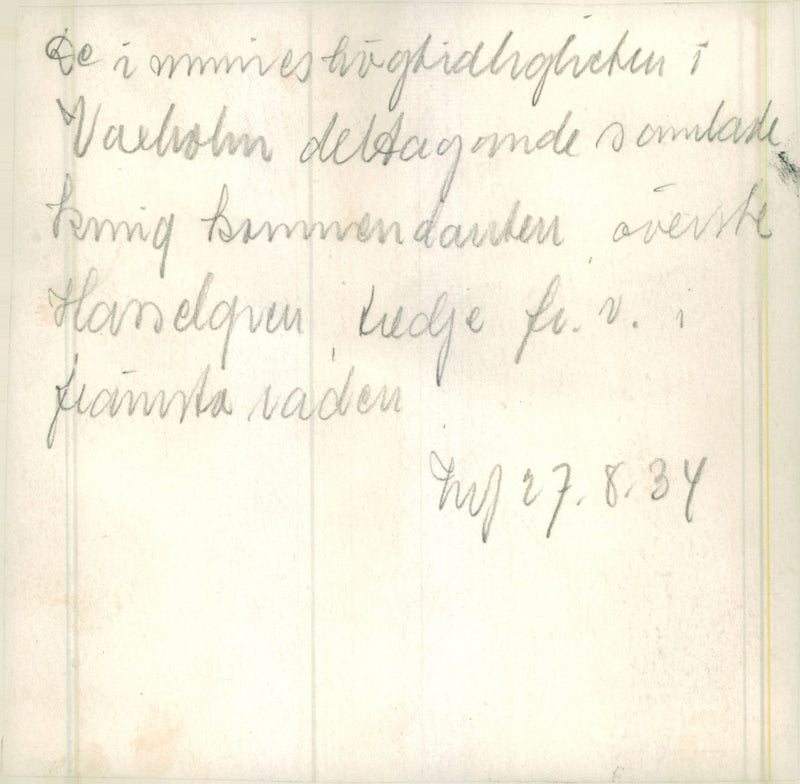 De i minneshögtidligheten i
Vaxholm deltagande samlade
kring kommendanten, överste
Hasselgren, tredje fr. v. i
främsta raden
27.8.34